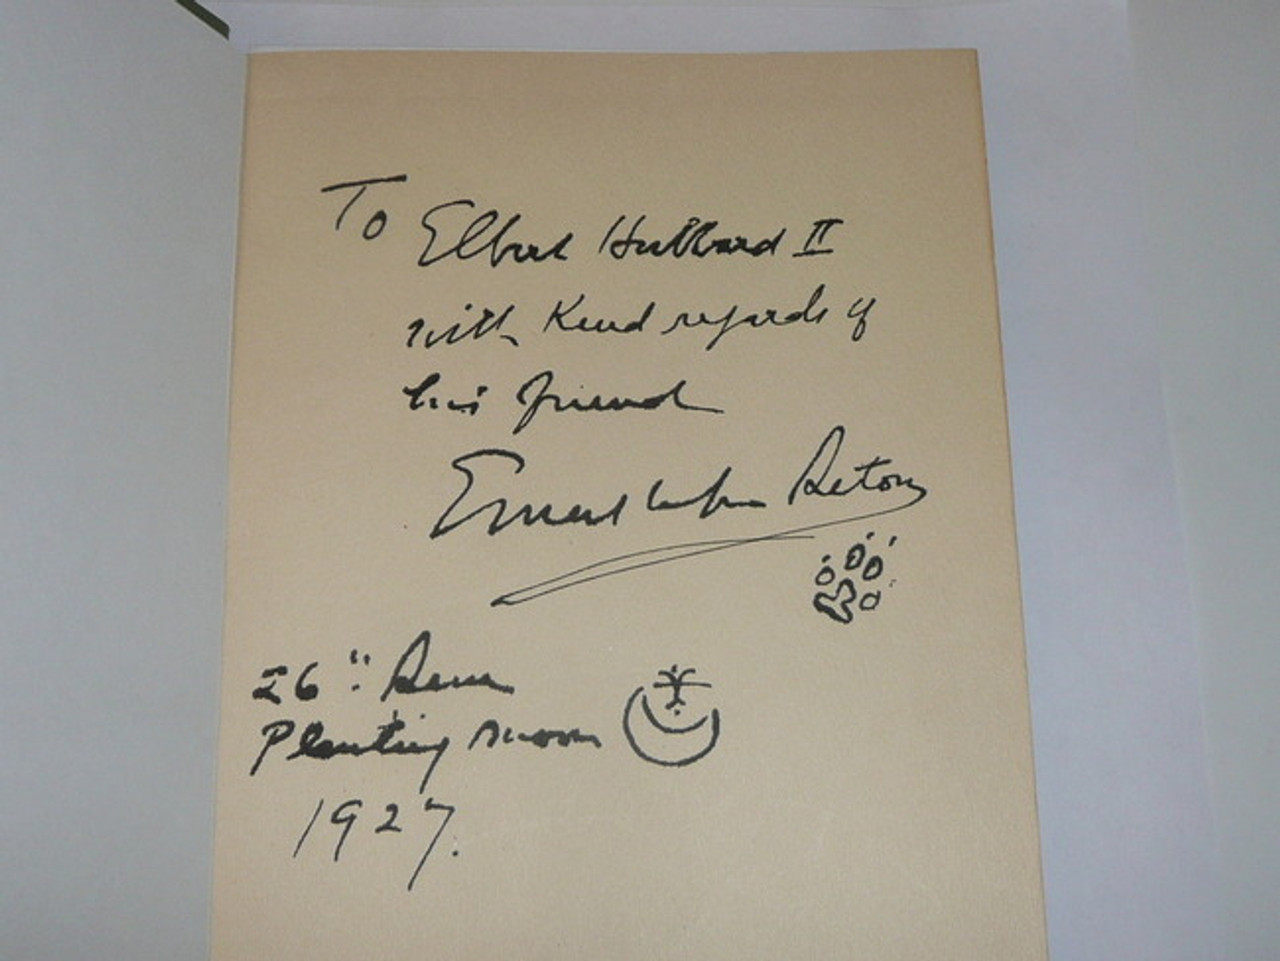 To Elbert Hubbard II
with Kind regards of
his friend
Ernest Thompson Seton
26" Sun
Planting Moon
1927.